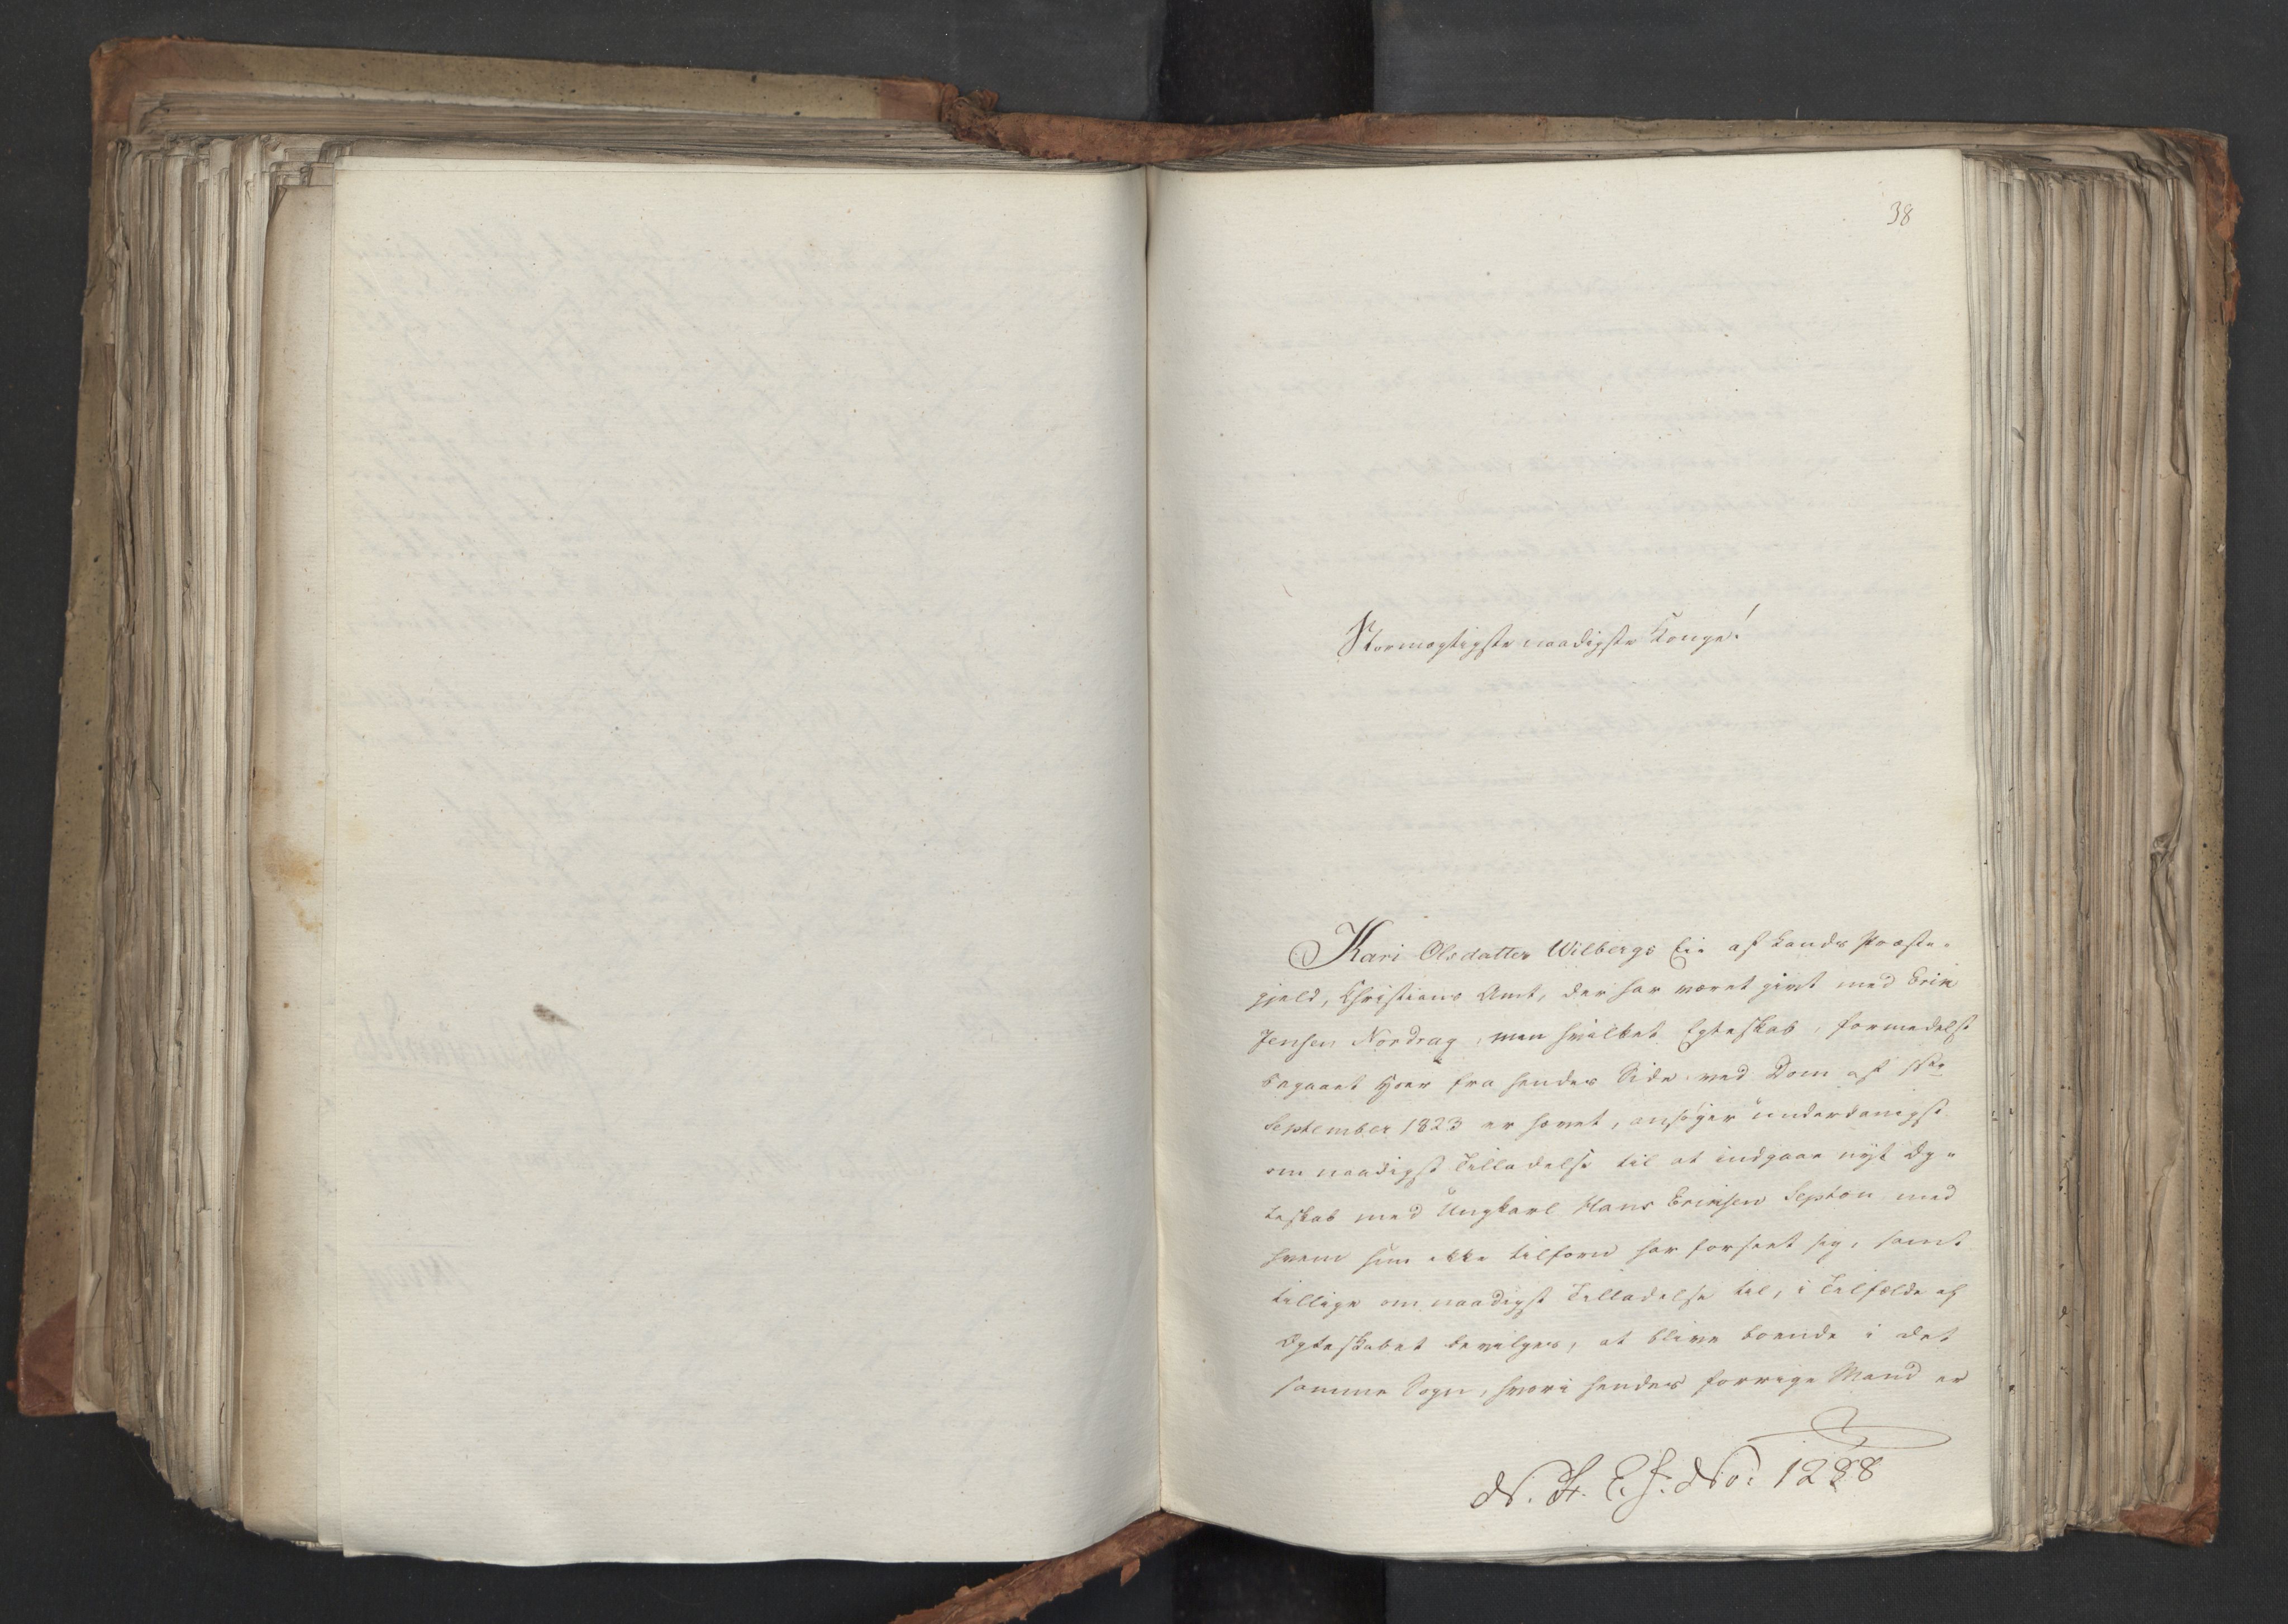 38
Stormægtigste naadigste Konge!
Kari Olsdatter Wilbergs Eie af Lands Præste-
gjeld, Christians Amt, der har været givt med Erik
Jensen Nordrag, men hvilket Egteskab, formedelst
begaaet Hoer fra hendes Side ved Dom af
September 1823 er hævet, ansøger underdanigst
om naadigst Tilladelse til at indgaae nyt Æg-
teskab med Ungkarl Hans Eriksen med
hvem hun ikke tilforn har forseet sig, samt
tillige om naadigst Tilladelse til, i Tilfælde af
Ægteskabet bevilges, at blive boende i det
samme Sogn, hvori hendes forrige Mand er